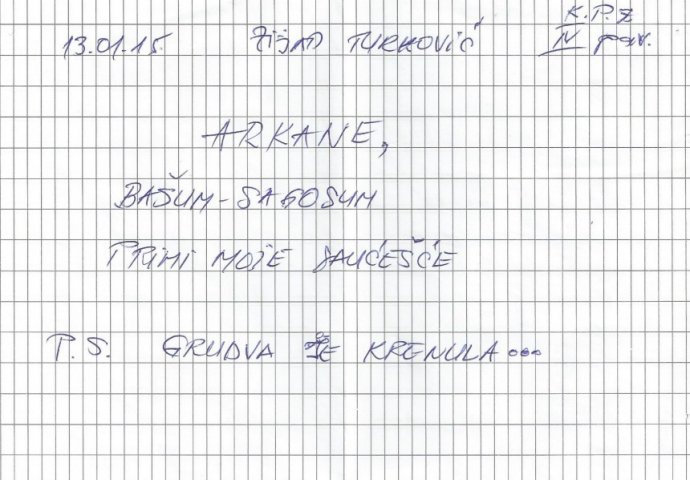 13.01.15. ZIJAD TURKOVIĆ K.P.Z
IV pav.
ARKANE,
BAŠUM-SAGOSUM
PRIMI MOJE SAUČEŠĆE
P.S. GRUDVA JE KRENULA...